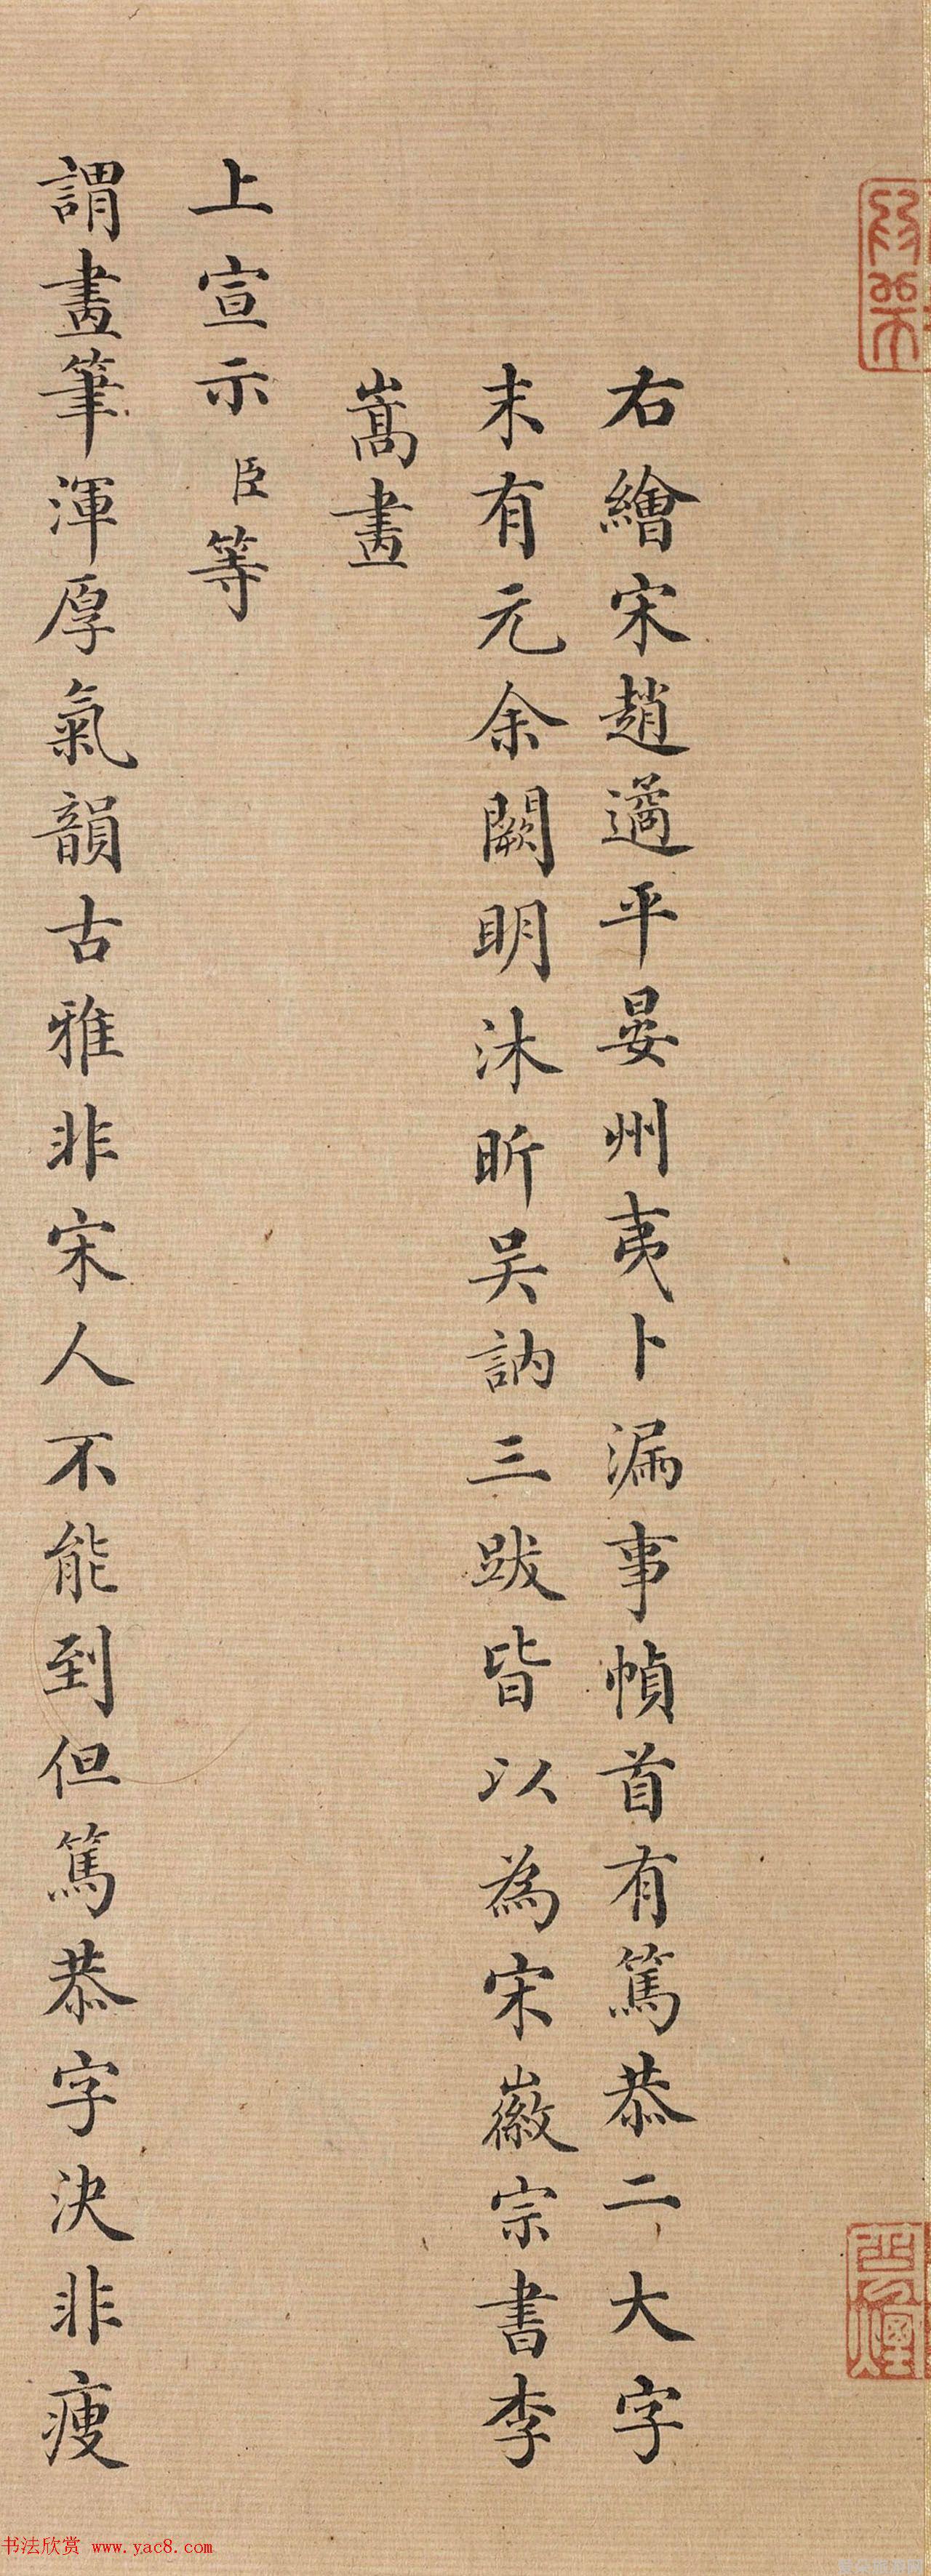 右繪宋趙遹平晏州夷卜漏事幀首有篤恭二大字
末有元余闕明沐昕吳訥三跋皆以為宋徽宗書李
嵩畫
上宣示臣等
謂畫筆渾厚氣韻古雅非宋人不能到但篤恭字決非瘦
书法欣赏 www.yac8.com